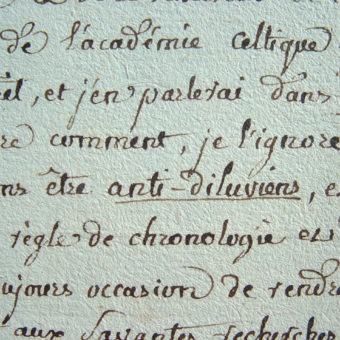 de l'académie celtique
et j'en parlerai dans
comment, je l'ignore
être anti-diluviens,
règle de chronologie et
occasion de rendre
aux savantes recherches